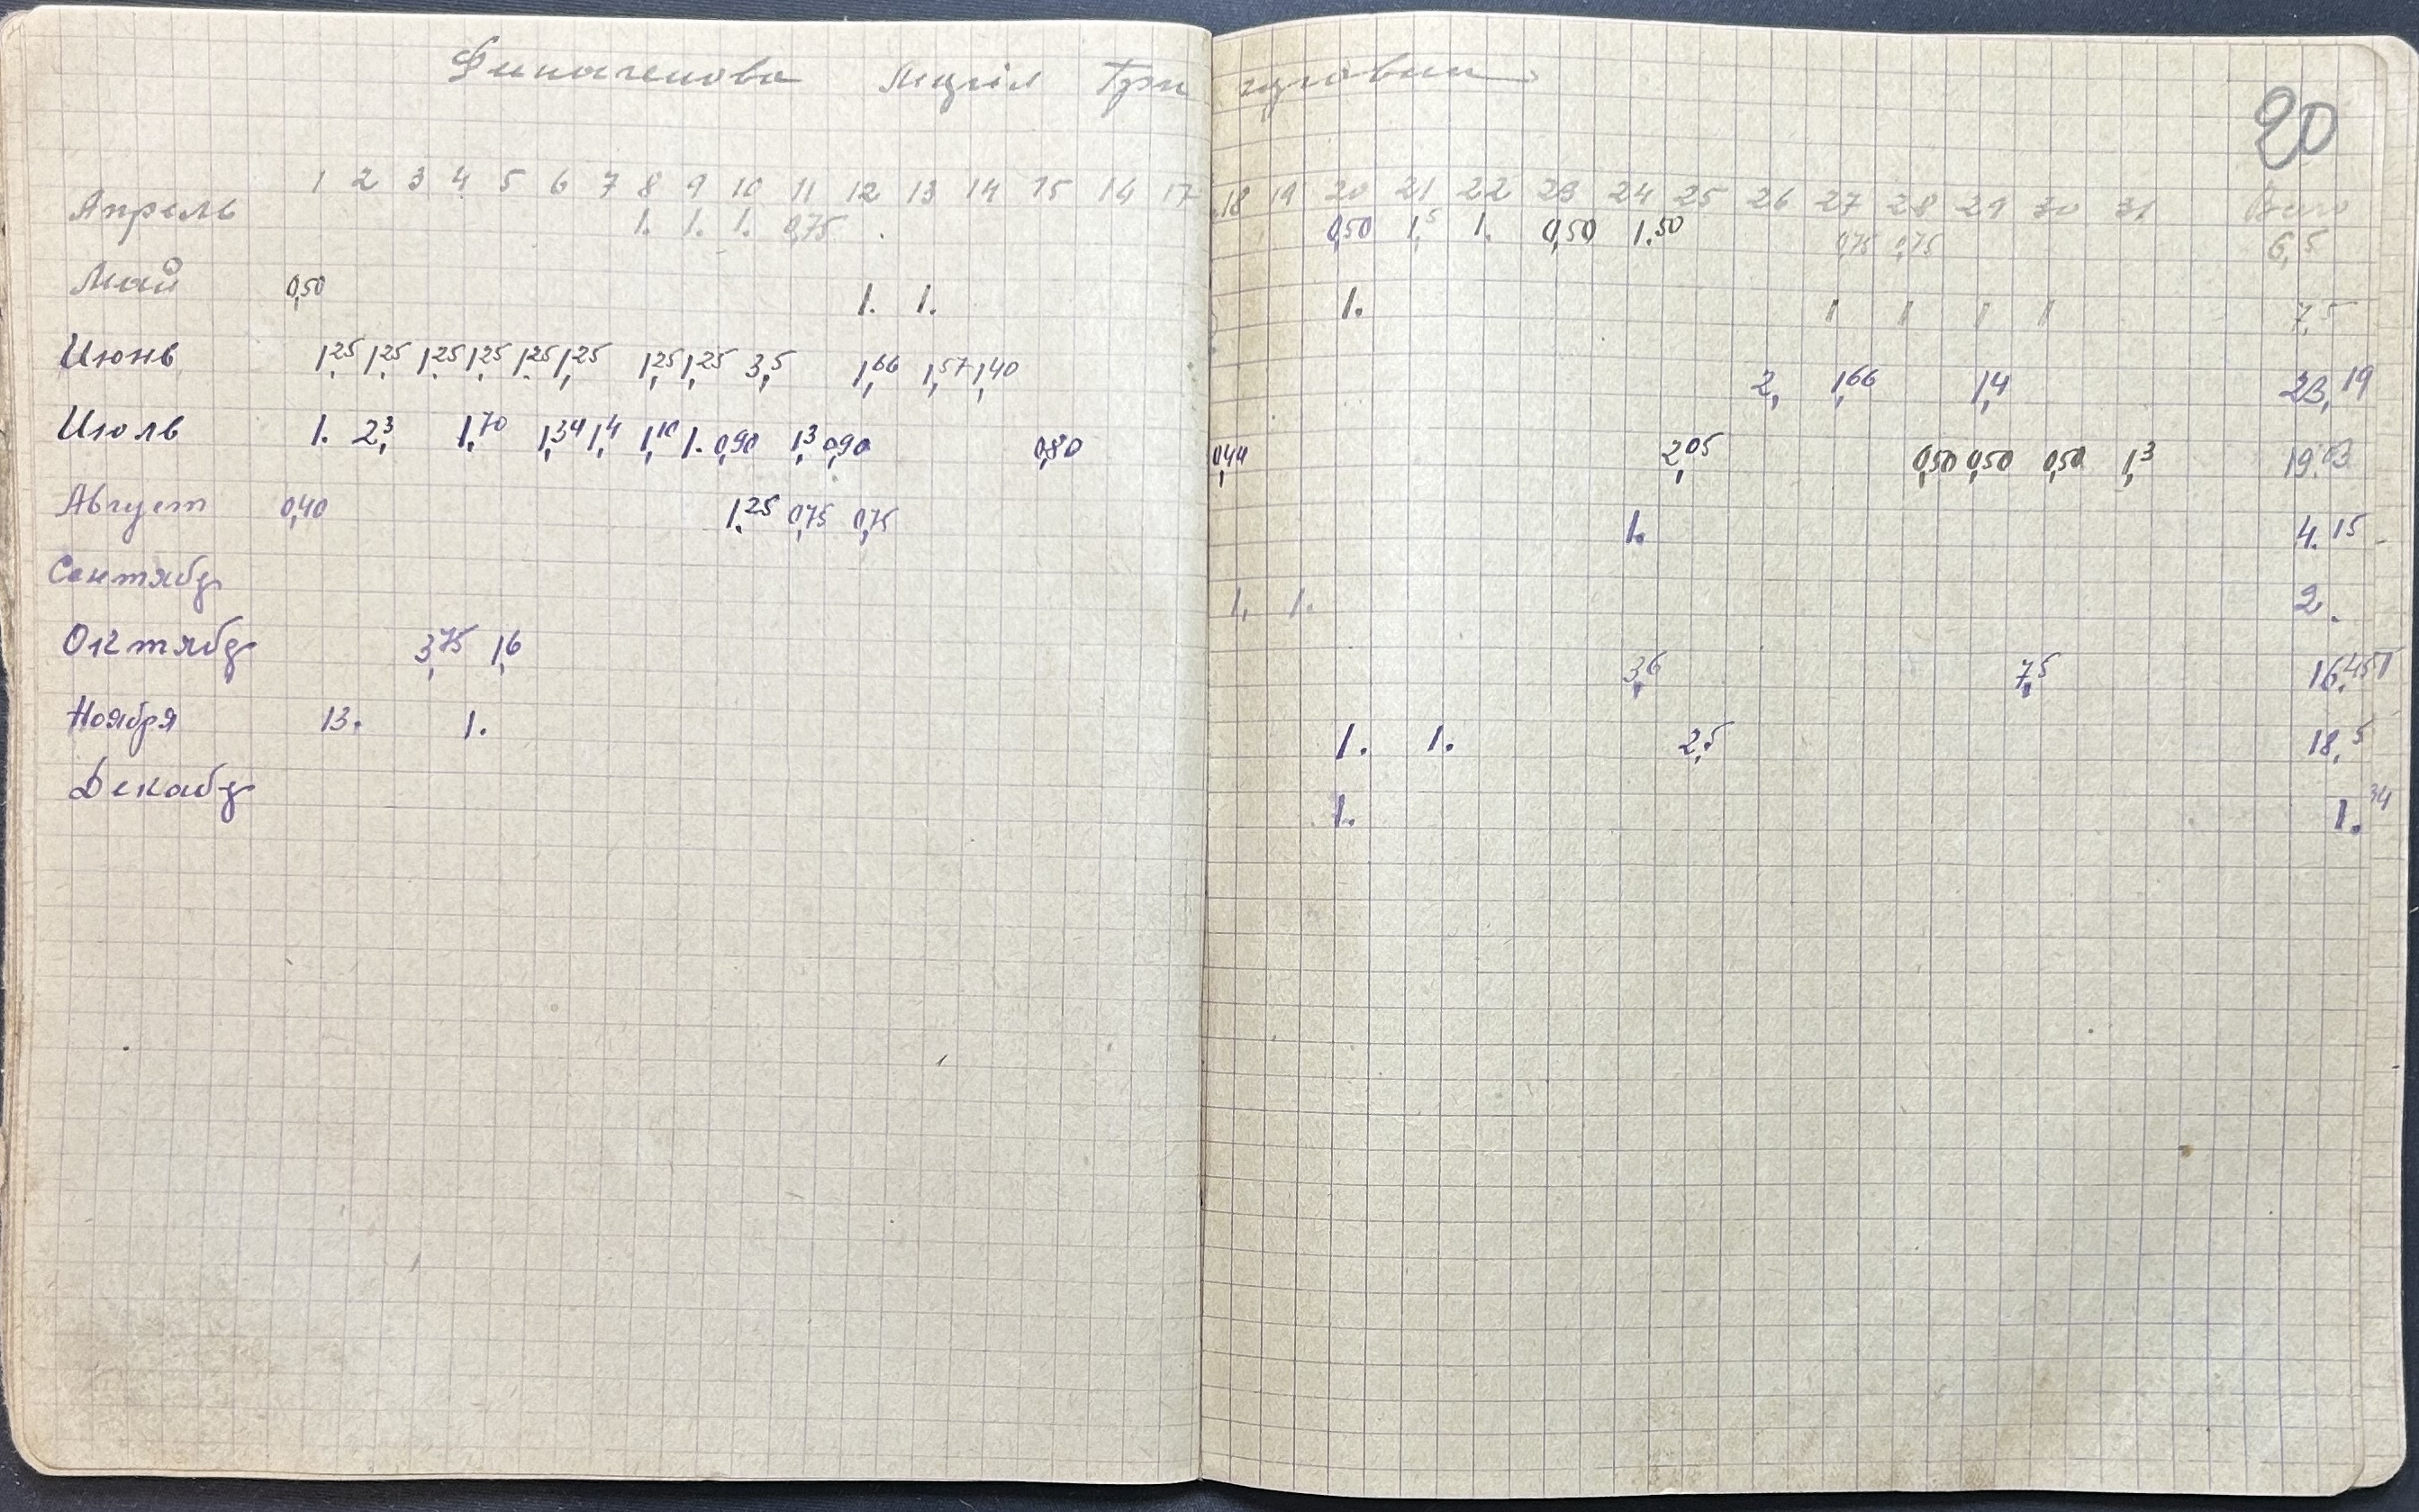 20
1 2 3 4 5 6 7 8 9 10 11 12 13 14 15 16 17 18 19 20 21 22 23 24 25 26 27 28 29 30 31
Апрель 1. 1. 1. 0,75 0,50 1,5 1. 0,50 1.50 0,75 0,75 6,5
Май 0,50 1. 1. 1. 1 1 1 1 7,5
Июнь 1,25 1,25 1,25 1,25 1,25 1,25 1,25 1,25 3,5 1,66 1,57 1,40 2, 1,66 1,4 23,19
Июль 1. 2,3 1,70 1,34 1,4 1,10 1. 0,90 1,3 0,90 0,80 0,44 2,05 0,50 0,50 0,50 1,3 19.03
Август 0,40 1.25 0,75 0,75 1. 4.15
Сентябр 1, 1. 2.
Октябр 3,75 1,6 3,6 7,5 16,45
Ноября 13. 1. 1. 1. 2,5 18,5
Декабр 1. 1.34